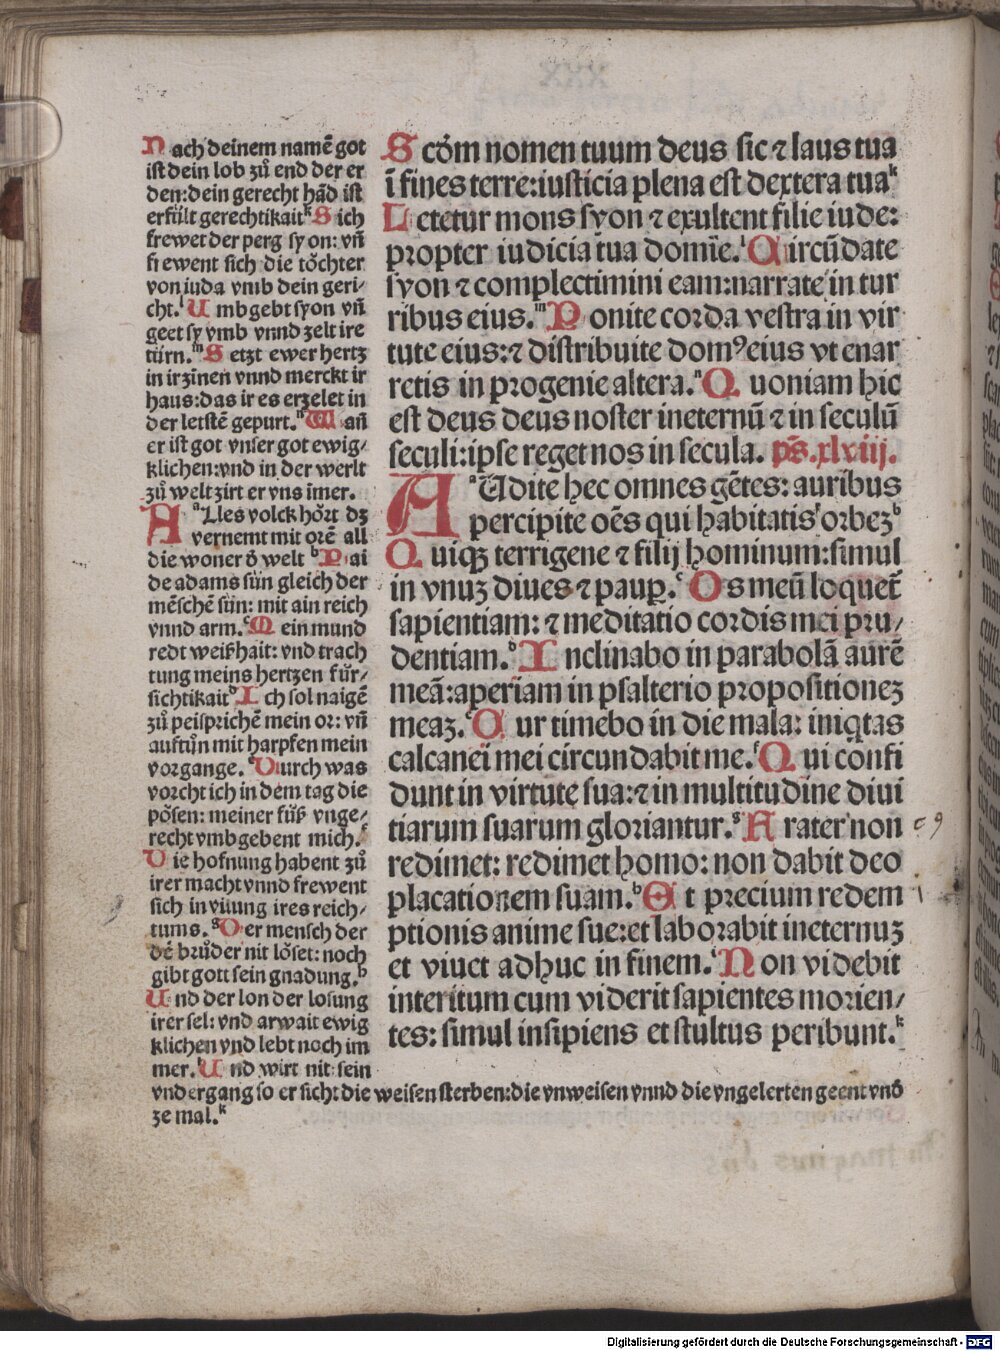 Nach deinem namẽ got
ist dein lob zů end der er
den: dein gerecht hãd ist
erfült gerechtikaitᵏ Sich
frewet der perg syon: vñ
frewent sich die töchter
von iuda vmb dein geri-
cht.ˡ Umbgebt syon vñ
geet sy vmb vnnd zelt ire
türn.ᵐ Setzt ewer hertz
in ir zinen vnnd merckt ir
haus: das ir es erzelet in
der letstẽ gepurt.ⁿ Wañ
er ist got vnser got ewig/
klichen: vnd in der werlt
zů welt zirt er vns im̃er.
Aᵃlles volck hört dz
vernemt mit orẽ all
die woner d̃ welt ᵇ Pai
de adams sün gleich der
mẽschẽ sün: mit ain reich
vnnd arm.ᶜ Mein mund
redt weißhait: vnd trach
tung meins hertzen für/
sichtikaitᵈ Ich sol naigẽ
zů peisprichẽ mein or: vñ
auftůn mit harpfen mein
vorgange.ᵉ Durch was
vorcht ich in dem tag die
pösen: meiner füß vnge/
recht vmbgebent mich.ᶠ
Die hofnung habent zů
irer macht vnnd frewent
sich in viiung ires reich/
tums.ᵍ Der mensch der
dẽ brůder nit löset: noch
gibt gott sein gnadung.ʰ
Und der lon der losung
irer sel: vnd arwait ewig
klichen vnd lebt noch im
mer.ⁱ Und wirt nit sein
vndergang so er sicht die weisen sterben: die vnweisen vnnd die vngelerten geent vnd̃
ze mal.ᵏ
Scd̃m nomen tuum deus sic ⁊ laus tua
ĩ fines terre: iusticia plena est dextera tuaᵏ
Letetur mons syon ⁊ exultent filie iude:
propter iudicia tua domĩe.ˡ Circũdate
syon ⁊ complectimini eam: narrate in tur
ribus eius.ᵐ Ponite corda vestra in vir
tute eius: ⁊ distribuite domꝰ eius vt enar
retis in progenie altera.ⁿ Quoniam hic
est deus deus noster in eternũ ⁊ in seculũ
seculi: ipse reget nos in secula. ps̃. xlviij.
AᵃUdite hec omnes gẽtes: auribus
percipite oẽs qui habitatis orbeꝫᵇ
Quiqꝫ terrigene ⁊ filij hominum: simul
in vnuꝫ diues ⁊ paup̱.ᶜ Os meũ loquet̃
sapientiam: ⁊ meditatio cordis mei pru/
dentiam.ᵈ Inclinabo in parabolã aurẽ
meã: aperiam in psalterio propositioneꝫ
meaꝫ.ᵉ Cur timebo in die mala: iniq̃tas
calcanei mei circundabit me.ᶠ Qui confi
dunt in virtute sua: ⁊ in multitudine diui
tiarum suarum gloriantur.ᵍ Frater non
redimet: redimet homo: non dabit deo
placationem suam.ʰ Et precium redem
ptionis anime sue: et laborabit in eternuꝫ
et viuet adhuc in finem.ⁱ Non videbit
interitum cum viderit sapientes morien/
tes: simul insipiens et stultus peribunt.ᵏ
Digitalisierung gefördert durch die Deutsche Forschungsgemeinschaft - DFG